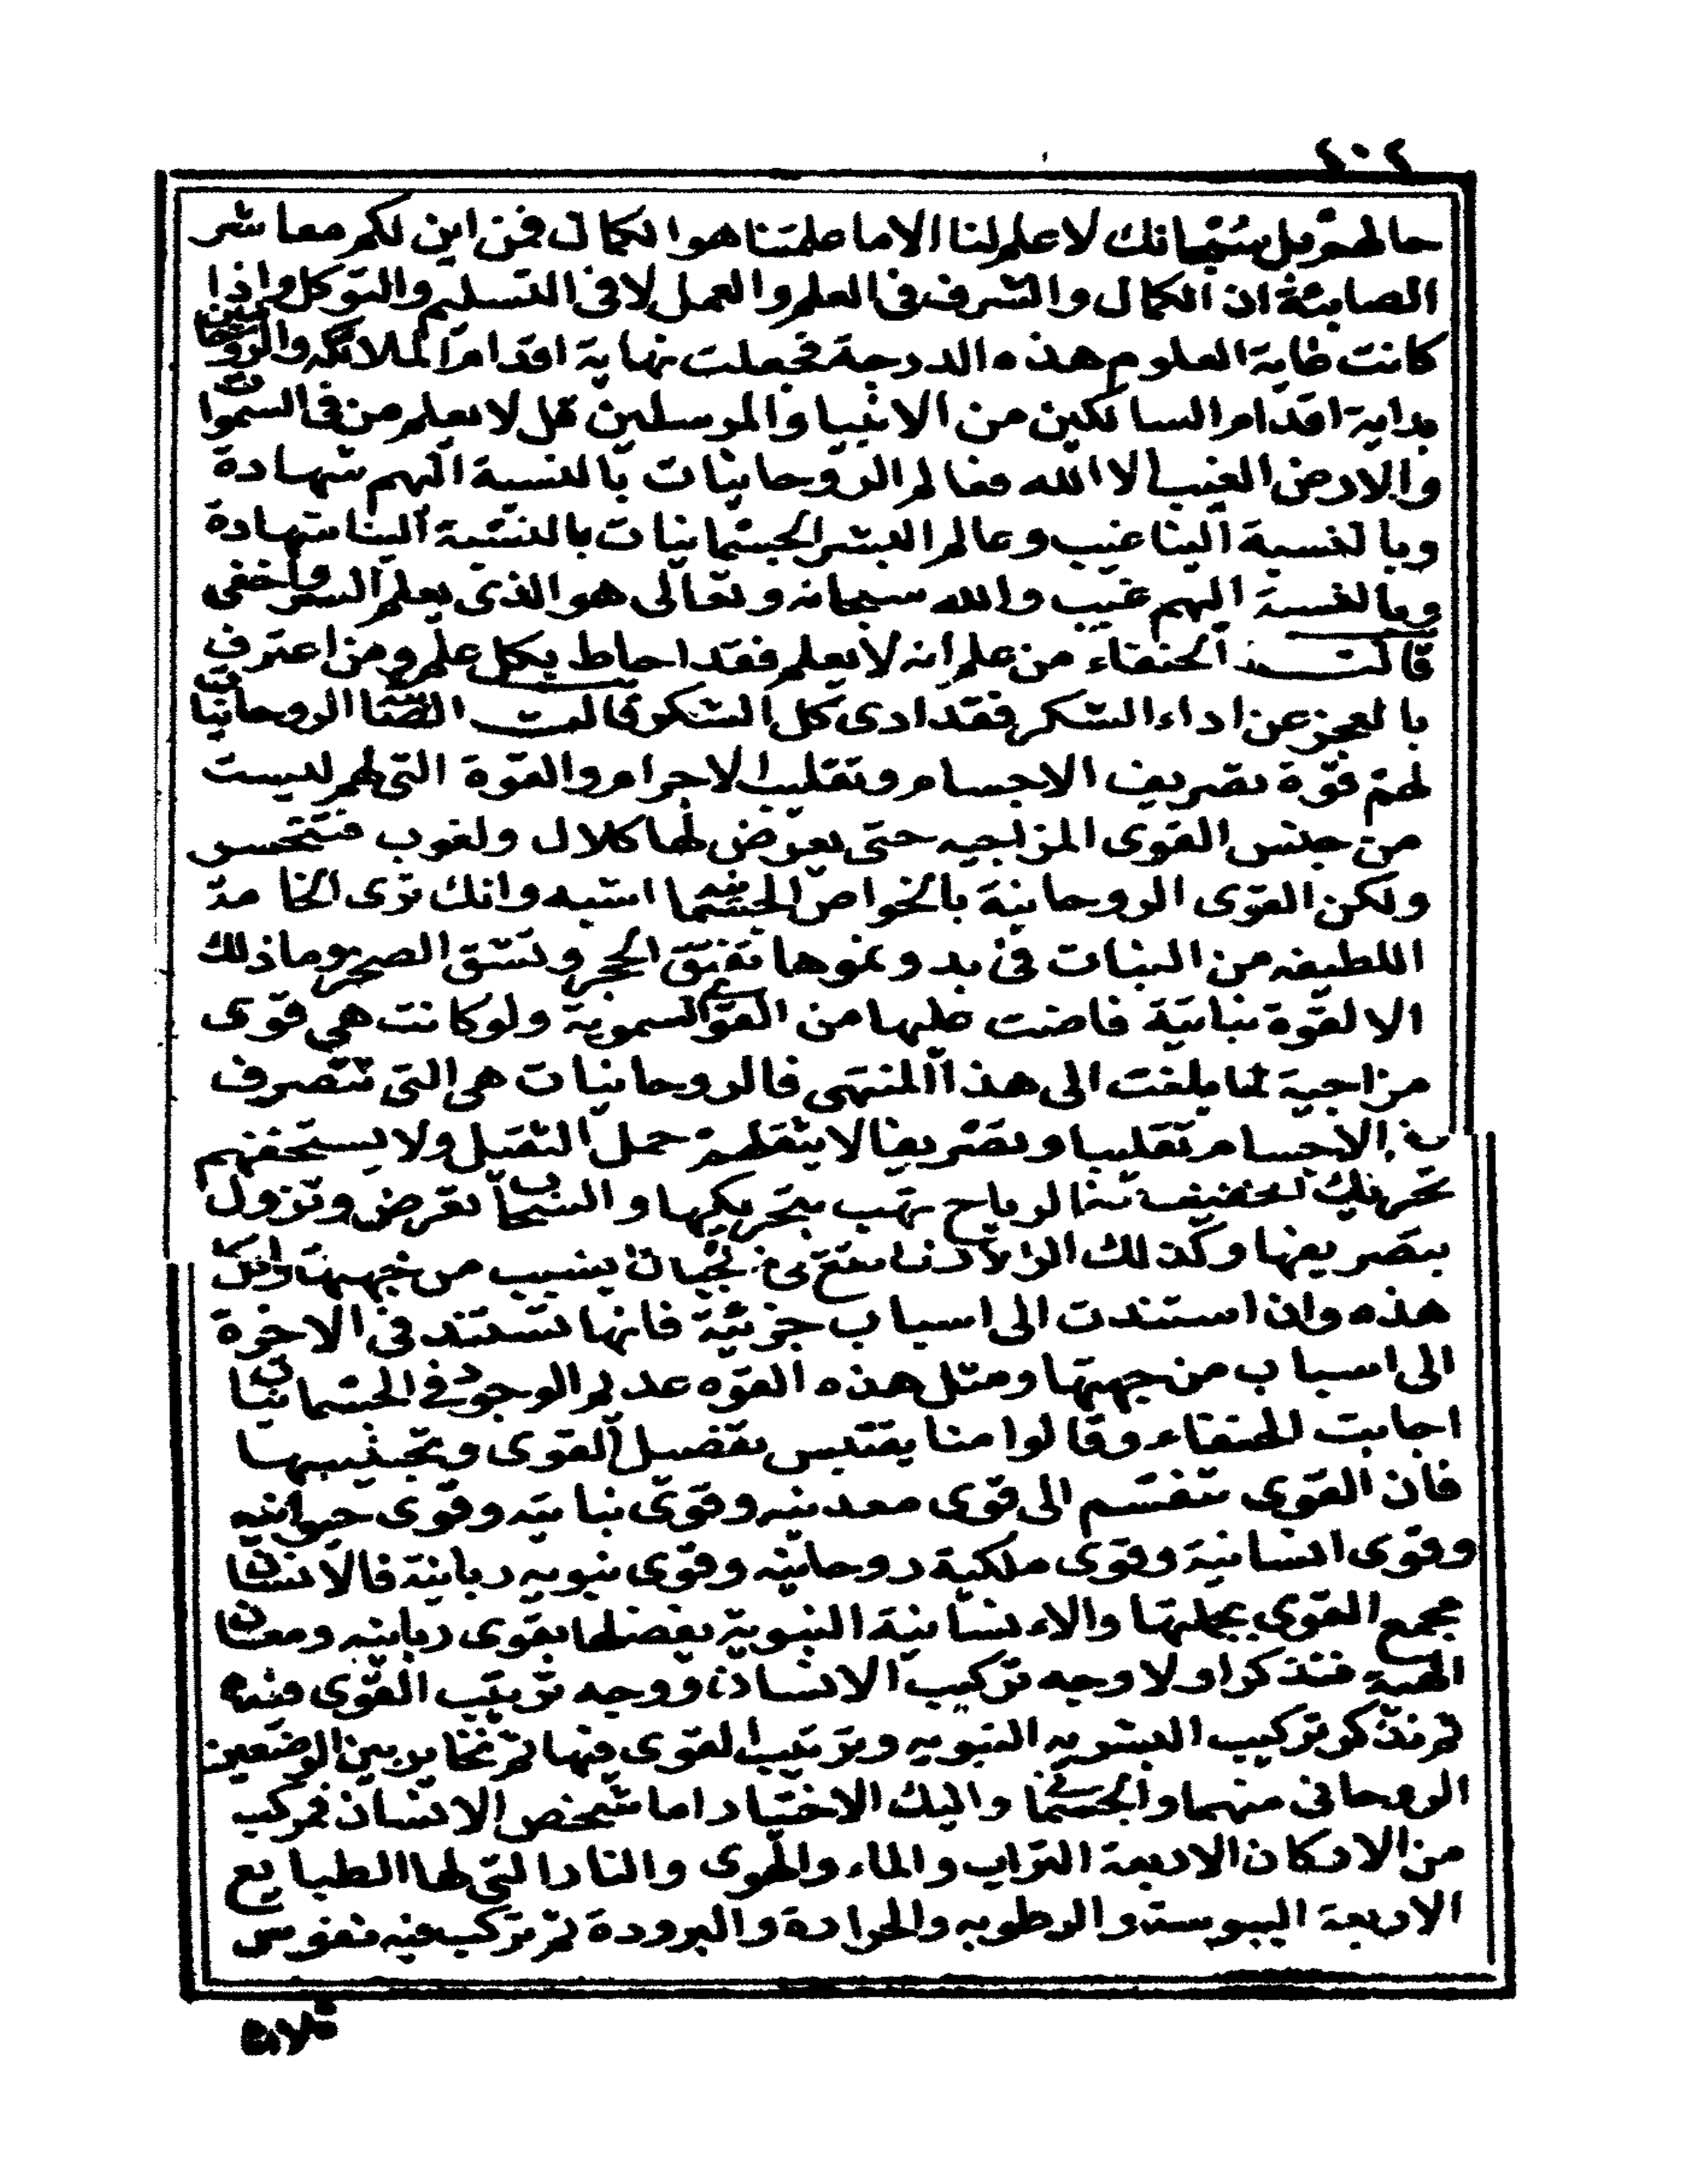 ٤٠٢
حالهم قبل سبحانك لا علم لنا الا ما علمتنا هو الكمال فمن اين لكم معاشر
الصابئة ان الكمال والشرف في العلم والعمل لا في التسليم والتوكل واذا
كانت غاية العلوم هذه الدرجة فجعلت نهاية اقدام الملائكة والروحانيين
بداية اقدام السالكين من الانبيا والمرسلين قل لا يعلم من في السموات
والارض الغيب الا الله فعالم الروحانيات بالنسبة اليهم شهادة
وبالنسبة الينا غيب وعالم البشر الجسمانيات بالنسبة الينا شهادة
وبالنسبة اليهم غيب والله سبحانه وتعالى هو الذى يعلم السر واخفى
قالت الحنفاء من علم انه لا يعلم فقد احاط بكل علم ومن اعترف
بالعجز عن اداء الشكر فقد ادى كل الشكر قالت الصابئة الروحانيات
لهم قوة تصريف الاجسام وتقليب الاجرام والقوة التى لهم ليست
من جنس القوى المزاجيه حتى يعرض لها كلال ولغوب فتنحسر
ولكن القوى الروحانية بالخواص الجسمانيه اشبه وانك ترى الخامة
اللطيفه من النبات في بدو نموها تفتق الحجر وتشق الصخر وما ذلك
الا لقوة نباتية فاضت عليها من القوى السموية ولو كانت هي قوى
مزاجية لما بلغت الى هذا المنتهى فالروحانيات هي التى تتصرف
في الاجسام تقليبا وتصريفا لا يثقلهم حمل الثقيل ولا يستخفهم
تحريك الخفيف فالرياح تهب بتحريكها والسحاب تعرض وتزول
بتصريفها وكذلك الزلازل تقع في الجبال بسبب من جهتها وكل
هذه وان استندت الى اسباب جزئية فانها تستند في الاخرة
الى اسباب من جهتها ومثل هذه القوه عديم الوجود في الجسمانيات
اجابت الحنفاء وقالوا منا يقتبس تفصيل القوى وتجنيسها
فان القوى تنقسم الى قوى معدنيه وقوى نباتيه وقوى حيوانيه
وقوى انسانية وقوى ملكية روحانيه وقوى نبويه ربانية فالانسان
مجمع القوى بجملتها والانسانية النبوية بفضلها بقوى ربانيه ومعان
الهية فنذكر اولا وجه تركيب الانسان ووجه ترتيب القوى فيه
ثم نذكر تركيب البشريه النبويه وترتيب القوى فيها ثم نخاير بين الوضعين
الروحانى منهما والجسمانى واليك الاختيار اما شخص الانسان فمركب
من الاركان الاربعة التراب والماء والهوى والنار التى لها الطبايع
الاربعة اليبوسة والرطوبه والحرارة والبرودة ثم تركب فيه نفوس
ثلاث